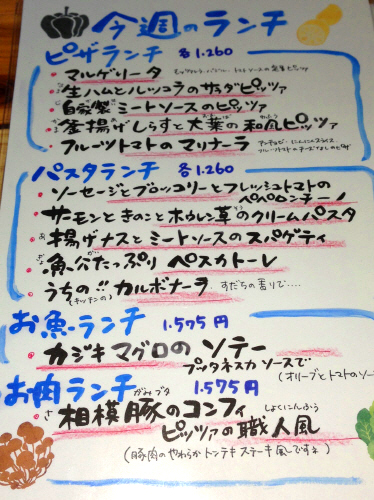 今週のランチ
ピザランチ 各1.260
・マルゲリータ モッツァレラ・バジル・トマトソースの定番ピッツァ
・生ハムとルッコラのサラダピッツァ
・自家製ミートソースのピッツァ
・釜揚げしらすと大葉の和風ピッツァ
・フルーツトマトのマリナーラ アンチョビ・にんにくスライス
フルーツトマトのチーズなしのピザ
パスタランチ 各1.260
・ソーセージとブロッコリーとフレッシュトマトの
ペペロンチーノ
・サーモンときのことホウレン草のクリームパスタ
・揚げナスとミートソースのスパゲティ
・魚介たっぷり ペスカトーレ
・うちの!! カルボナーラ すだちの香りで....
(キッチンの)
お魚ランチ 1.575円
・カジキマグロの ソテー
プッタネスカソースで (オリーブとトマトのソー
お肉ランチ 1.575円
・相模豚のコンフィ
ピッツァの職人風
(豚肉のやわらかトンテキステーキ風ですネ)